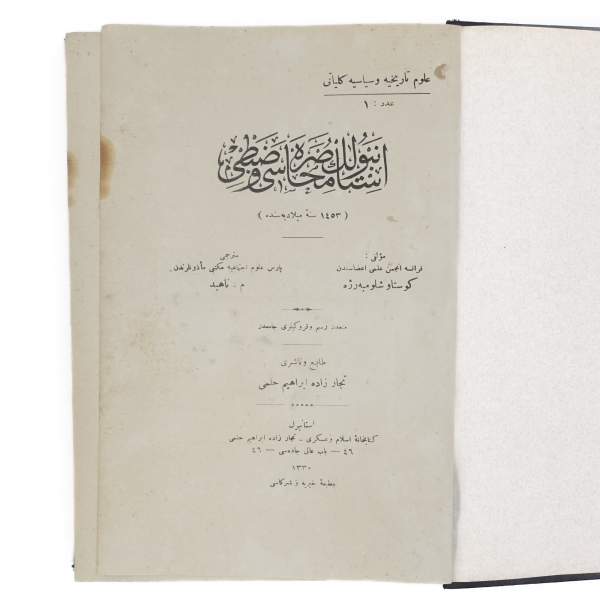 علوم تاريخيه و سياسيه كلياتى
عدد : ١
استانبولك محاصره سى و ضبطى
( ١٤٥٣ سنهٔ ميلاديه سنده )
مؤلفى :
فرانسه انجمن علمى اعضاسندن
گوستاو شلومبه رژه
مترجمى
پارس علوم اجتماعيه مكتبى مأذونلرندن
م . ناهيد
متعدد رسم و قروكيلرى جامعدر
طابع و ناشرى
تجار زاده ابراهيم حلمى
استانبول
كتابخانهٔ اسلام و عسكرى ـ تجار زاده ابراهيم حلمى
٤٦ — باب عالى جاده سى — ٤٦
١٣٣٠
مطبعهٔ خيريه و شركاسى